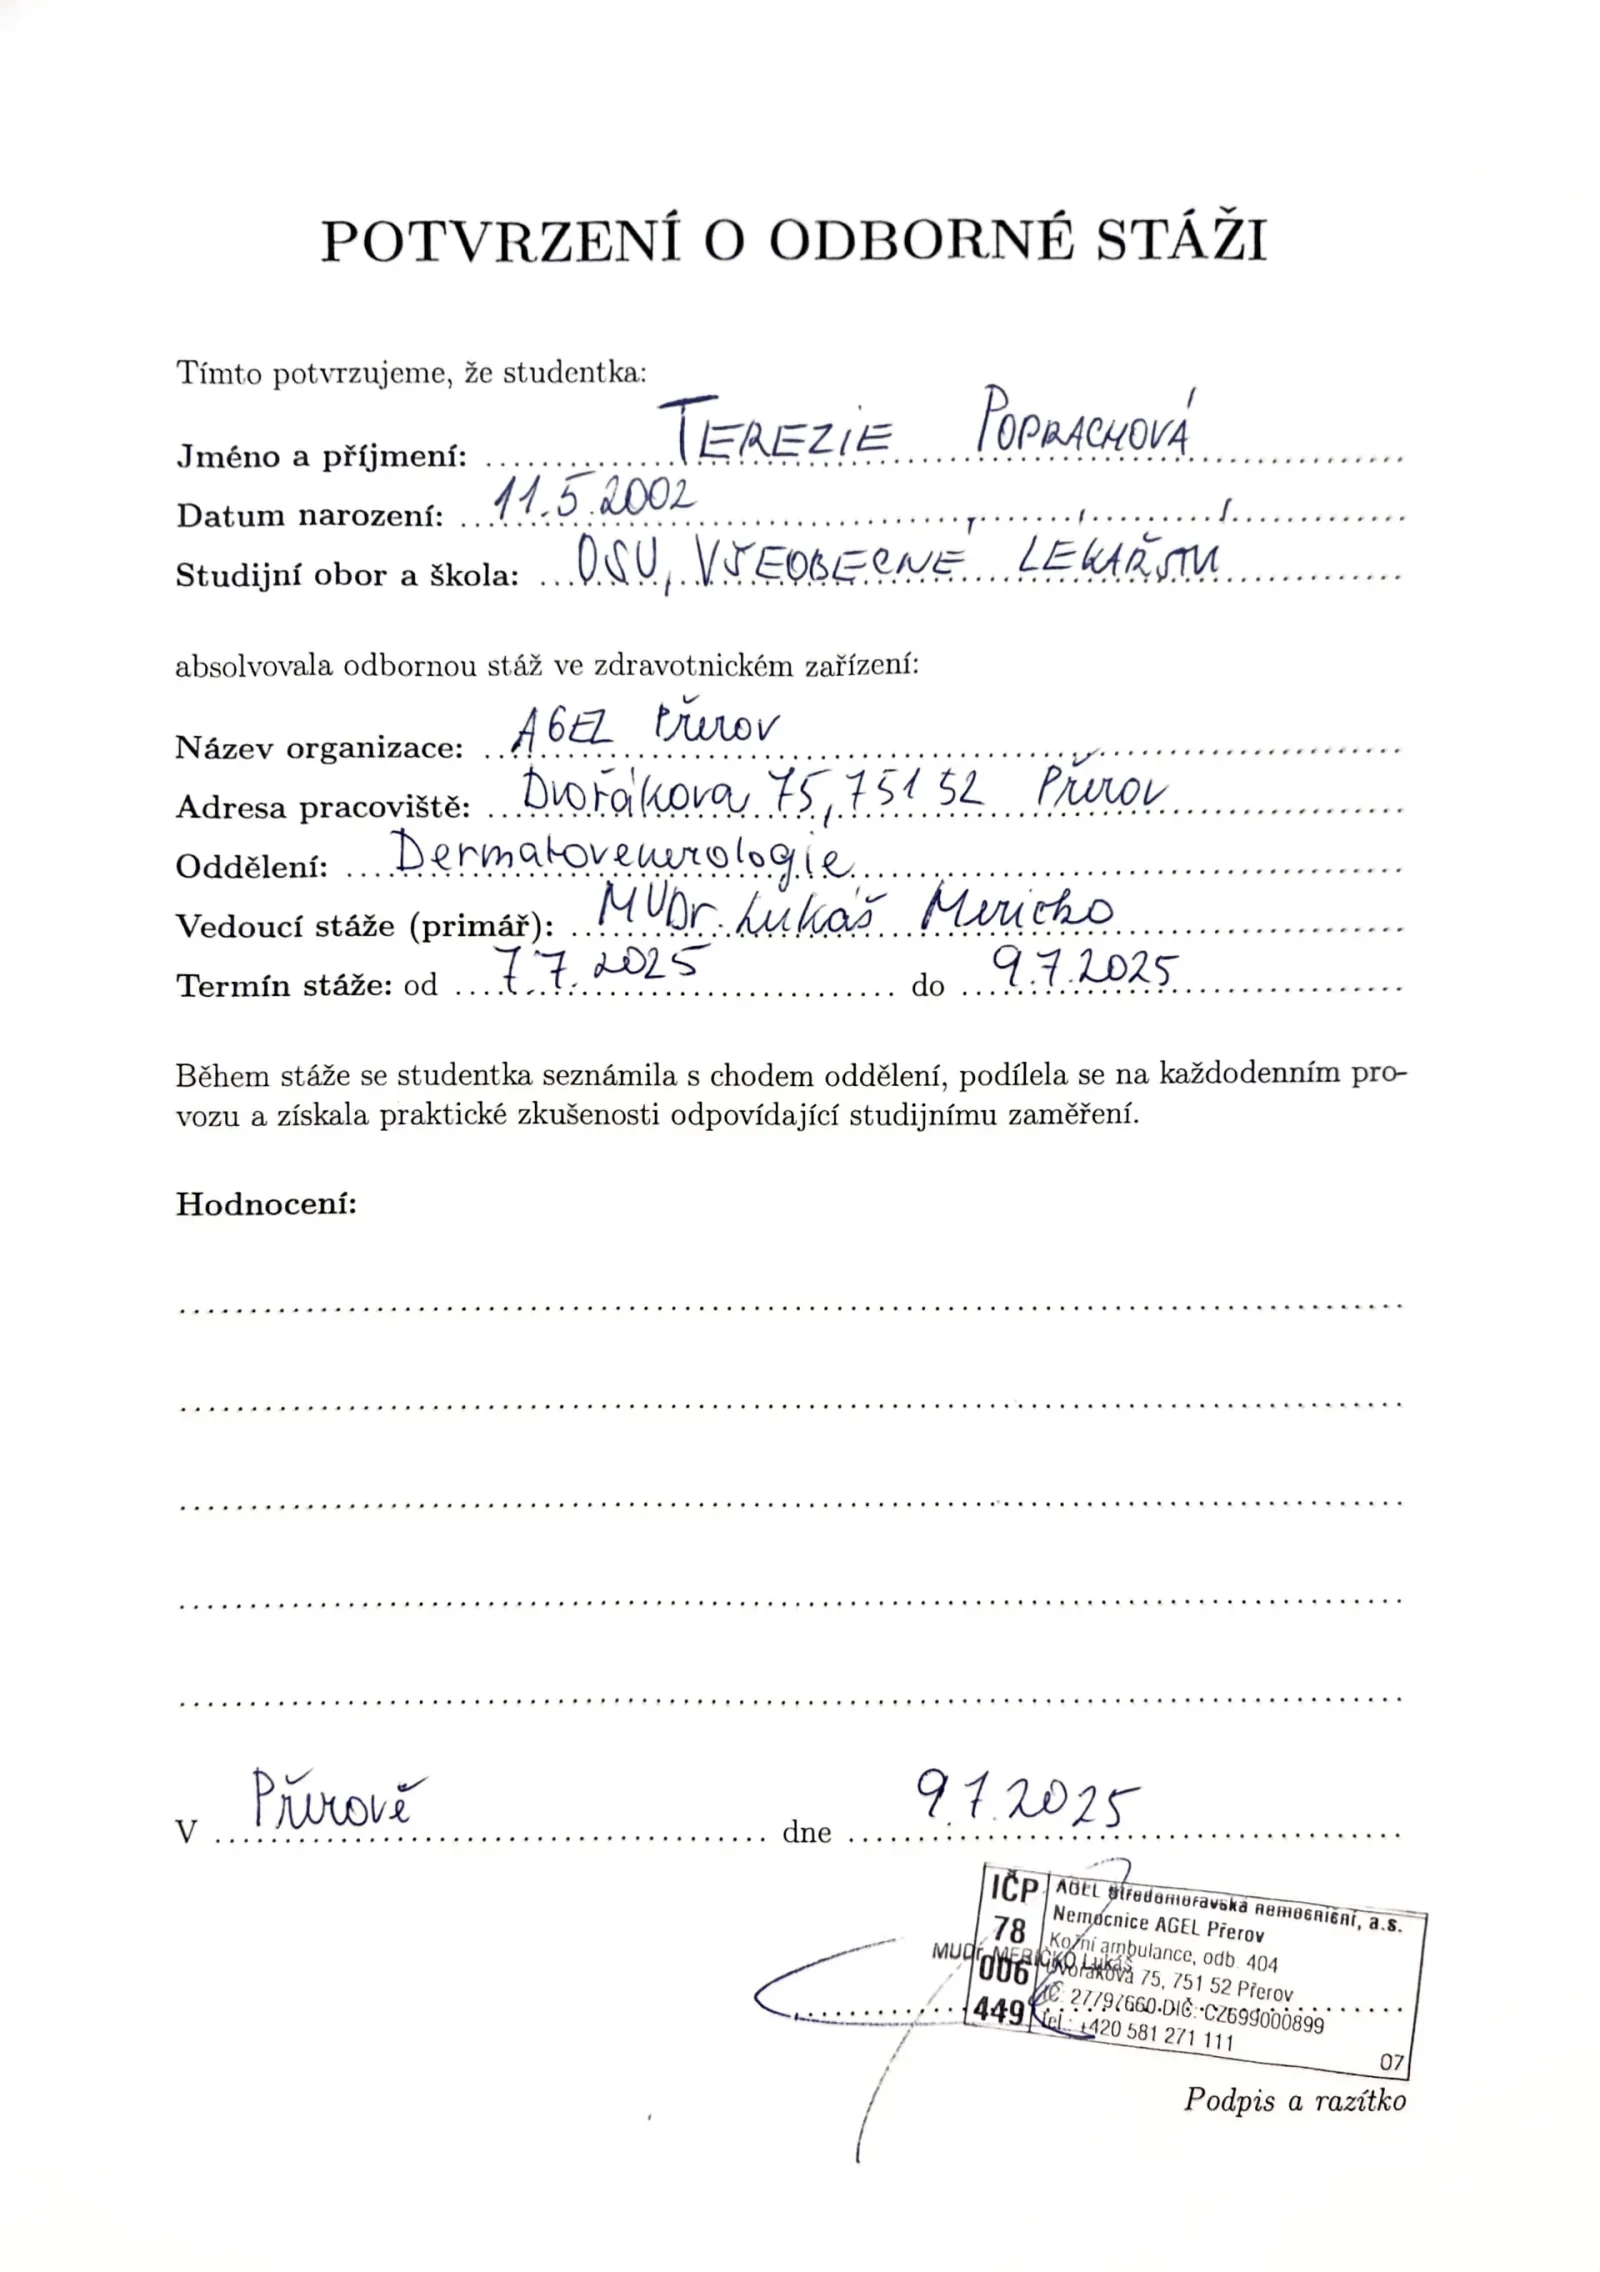 POTVRZENÍ O ODBORNÉ STÁŽI
Tímto potvrzujeme, že studentka:
Jméno a příjmení: TEREZIE POPRACHOVÁ
Datum narození: 11.5.2002
Studijní obor a škola: OSU, VŠEOBECNÉ LÉKAŘSTVÍ
absolvovala odbornou stáž ve zdravotnickém zařízení:
Název organizace: AGEL Přerov
Adresa pracoviště: Dvořákova 75, 751 52 Přerov
Oddělení: Dermatovenerologie
Vedoucí stáže (primář): MUDr. Lukáš Mericko
Termín stáže: od 7.7.2025 do 9.7.2025
Během stáže se studentka seznámila s chodem oddělení, podílela se na každodenním pro-
vozu a získala praktické zkušenosti odpovídající studijnímu zaměření.
Hodnocení:
V Přerově dne 9.7.2025
IČP
78
006
449
AGEL Středomoravská nemocniční, a.s.
Nemocnice AGEL Přerov
Kožní ambulance, odb. 404
MUDr. MERIČKO Lukáš
Dvořákova 75, 751 52 Přerov
IČ: 27797660 DIČ: CZ699000899
tel.: +420 581 271 111
07
Podpis a razítko